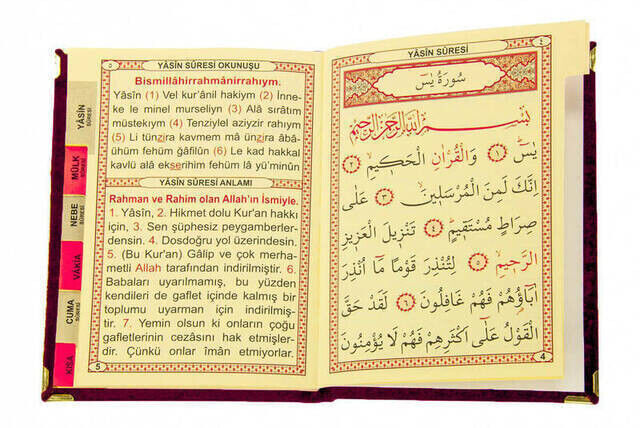 YÂSÎN SÛRESİ
٤
سُورَةُ يٰسٓ
بِسْمِ اللّٰهِ الرَّحْمٰنِ الرَّحٖيمِ
يٰسٓ ﴿١﴾ وَالْقُرْاٰنِ الْحَكٖيمِ ﴿٢﴾
اِنَّكَ لَمِنَ الْمُرْسَلٖينَ ﴿٣﴾ عَلٰى
صِرَاطٍ مُسْتَقٖيمٍ ﴿٤﴾ تَنْزٖيلَ الْعَزٖيزِ
الرَّحٖيمِ ﴿٥﴾ لِتُنْذِرَ قَوْمًا مَٓا اُنْذِرَ
اٰبَٓاؤُ۬هُمْ فَهُمْ غَافِلُونَ ﴿٦﴾ لَقَدْ حَقَّ
الْقَوْلُ عَلٰٓى اَكْثَرِهِمْ فَهُمْ لَا يُؤْمِنُونَ
4
٥
YÂSÎN SÛRESİ OKUNUŞU
Bismillâhirrahmânirrahıym.
Yâsîn (1) Vel kur'ânil hakiym (2) İnne-
ke le minel murseliyn (3) Alâ sırâtım
müstekıym (4) Tenziylel aziyzir rahıym
(5) Li tünzira kavmem mâ ünzira âbâ-
ühüm fehüm gâfilûn (6) Le kad hakkal
kavlü alâ ekserihim fehüm lâ yü'minûn
YÂSÎN SÛRESİ ANLAMI
Rahman ve Rahim olan Allah'ın İsmiyle.
1. Yâsîn, 2. Hikmet dolu Kur'an hakkı
için, 3. Sen şüphesiz peygamberler-
densin. 4. Dosdoğru yol üzerindesin.
5. (Bu Kur'an) Gâlip ve çok merha-
metli Allah tarafından indirilmiştir. 6.
Babaları uyarılmamış, bu yüzden
kendileri de gaflet içinde kalmış bir
toplumu uyarman için indirilmiş-
tir. 7. Yemin olsun ki onların çoğu
gafletlerinin cezasını hak etmişler-
dir. Çünkü onlar îmân etmiyorlar.
5
YÂSÎN
SÛRESİ
MÜLK
SÛRESİ
NEBE
SÛRESİ
VÂKIA
SÛRESİ
CUMA
SÛRESİ
KISA